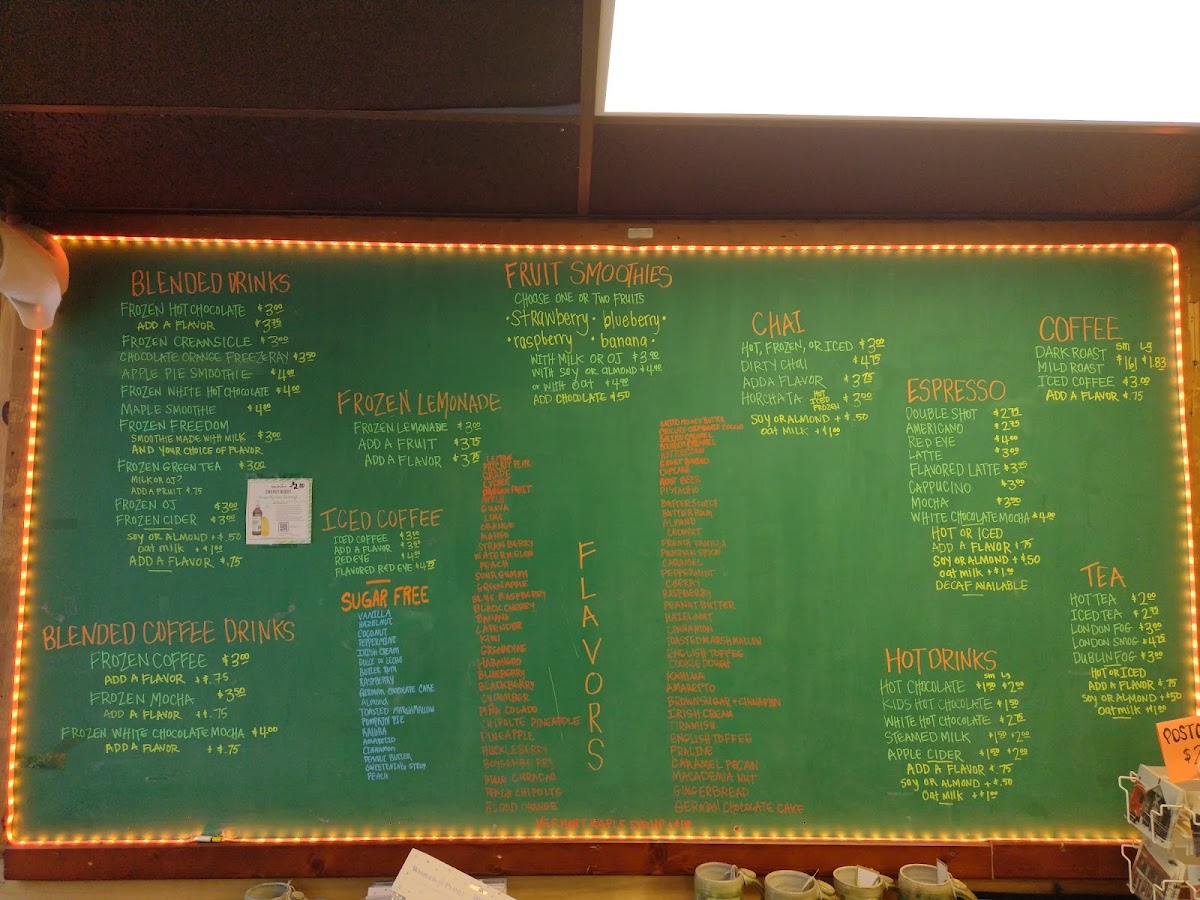 BLENDED DRINKS
FROZEN HOT CHOCOLATE $3.00
ADD A FLAVOR $3.75
FROZEN CREAMSICLE $3.00
CHOCOLATE ORANGE FREEZERAY $3.50
APPLE PIE SMOOTHIE $4.00
FROZEN WHITE HOT CHOCOLATE $4.00
MAPLE SMOOTHIE $4.00
FROZEN FREEDOM
SMOOTHIE MADE WITH MILK $3.00
AND YOUR CHOICE OF FLAVOR
FROZEN GREEN TEA $3.00
MILK OR OJ?
ADD A FRUIT $.75
FROZEN OJ $3.00
FROZEN CIDER $3.00
SOY OR ALMOND +$.50
oat milk +$1.00
ADD A FLAVOR $.75
BLENDED COFFEE DRINKS
FROZEN COFFEE $3.00
ADD A FLAVOR +$.75
FROZEN MOCHA $3.50
ADD A FLAVOR +$.75
FROZEN WHITE CHOCOLATE MOCHA $4.00
ADD A FLAVOR +$.75
FROZEN LEMONADE
FROZEN LEMONADE $3.00
ADD A FRUIT $3.75
ADD A FLAVOR $3.75
ICED COFFEE
ICED COFFEE $3.00
ADD A FLAVOR
RED EYE
FLAVORED RED EYE $4.75
SUGAR FREE
VANILLA
HAZELNUT
COCONUT
PEPPERMINT
IRISH CREAM
DULCE DE LECHE
BUTTER RUM
RASPBERRY
GERMAN CHOCOLATE CAKE
Almond
TOASTED MARSHMALLOW
PUMPKIN PIE
KAHLUA
AMARETTO
CINNAMON
PEANUT BUTTER
SWEETENING SYRUP
PEACH
FRUIT SMOOTHIES
CHOOSE ONE OR TWO FRUITS
• Strawberry • blueberry •
• raspberry • banana •
WITH MILK OR OJ $3.00
WITH SOY OR ALMOND $4.00
or WITH oat $4.00
ADD CHOCOLATE $.50
FLAVORS
PRICKLY PEAR
LYCHEE
DRAGON FRUIT
APPLE
GUAVA
LIME
ORANGE
MANGO
STRAWBERRY
WATERMELON
PEACH
SOUR GUMMY
GREEN APPLE
BLUE RASPBERRY
BLACK CHERRY
BANANA
LAVENDER
KIWI
GRENADINE
HABANERO
BLUEBERRY
BLACKBERRY
CUCUMBER
PIÑA COLADO
CHIPOLTE PINEAPPLE
PINEAPPLE
HUCKLEBERRY
BOYSENBERRY
BLUE CURACAO
PEACH CHIPOLTE
BLOOD ORANGE
SALTED CARAMEL
BOURBON CARAMEL
CUPCAKE
ROOT BEER
PISTACHIO
BUTTERSCOTCH
BUTTER RUM
ALMOND
COCONUT
FRENCH VANILLA
PUMPKIN SPICE
CARAMEL
PEPPERMINT
CHERRY
RASPBERRY
PEANUT BUTTER
HAZELNUT
CINNAMON
TOASTED MARSHMALLOW
ENGLISH TOFFEE
COOKIE DOUGH
KAHLUA
AMARETTO
BROWN SUGAR + CINNAMON
IRISH CREAM
TIRAMISU
ENGLISH TOFFEE
PRALINE
CARAMEL PECAN
MACADEMIA NUT
GINGERBREAD
GERMAN CHOCOLATE CAKE
VERMONT MAPLE SYRUP
CHAI
HOT, FROZEN, OR ICED $3.00
DIRTY CHAI $4.75
ADD A FLAVOR $3.75
HORCHATA HOT ICED FROZEN $3.00
SOY OR ALMOND +$.50
oat milk +$1.00
ESPRESSO
DOUBLE SHOT $2.75
AMERICANO $2.75
RED EYE $4.00
LATTE $3.00
FLAVORED LATTE $3.75
CAPPUCINO $3.00
MOCHA $3.50
WHITE CHOCOLATE MOCHA $4.00
HOT OR ICED
ADD A FLAVOR $.75
SOY OR ALMOND +$.50
oat milk +$1.00
DECAF AVAILABLE
HOT DRINKS
Sm Lg
HOT CHOCOLATE $1.50 $2.00
KIDS HOT CHOCOLATE $1.50
WHITE HOT CHOCOLATE $2.75
STEAMED MILK $1.50 $2.00
APPLE CIDER $1.50 $2.00
ADD A FLAVOR $.75
SOY OR ALMOND +$.50
Oat milk +$1.00
COFFEE
Sm Lg
DARK ROAST
MILD ROAST $1.61 $1.83
ICED COFFEE $3.00
ADD A FLAVOR $.75
TEA
HOT TEA $2.00
ICED TEA $2.75
LONDON FOG $3.00
LONDON SMOG $4.75
DUBLIN FOG $3.00
HOT OR ICED
ADD A FLAVOR $.75
SOY OR ALMOND +$.50
oat milk +$1.00